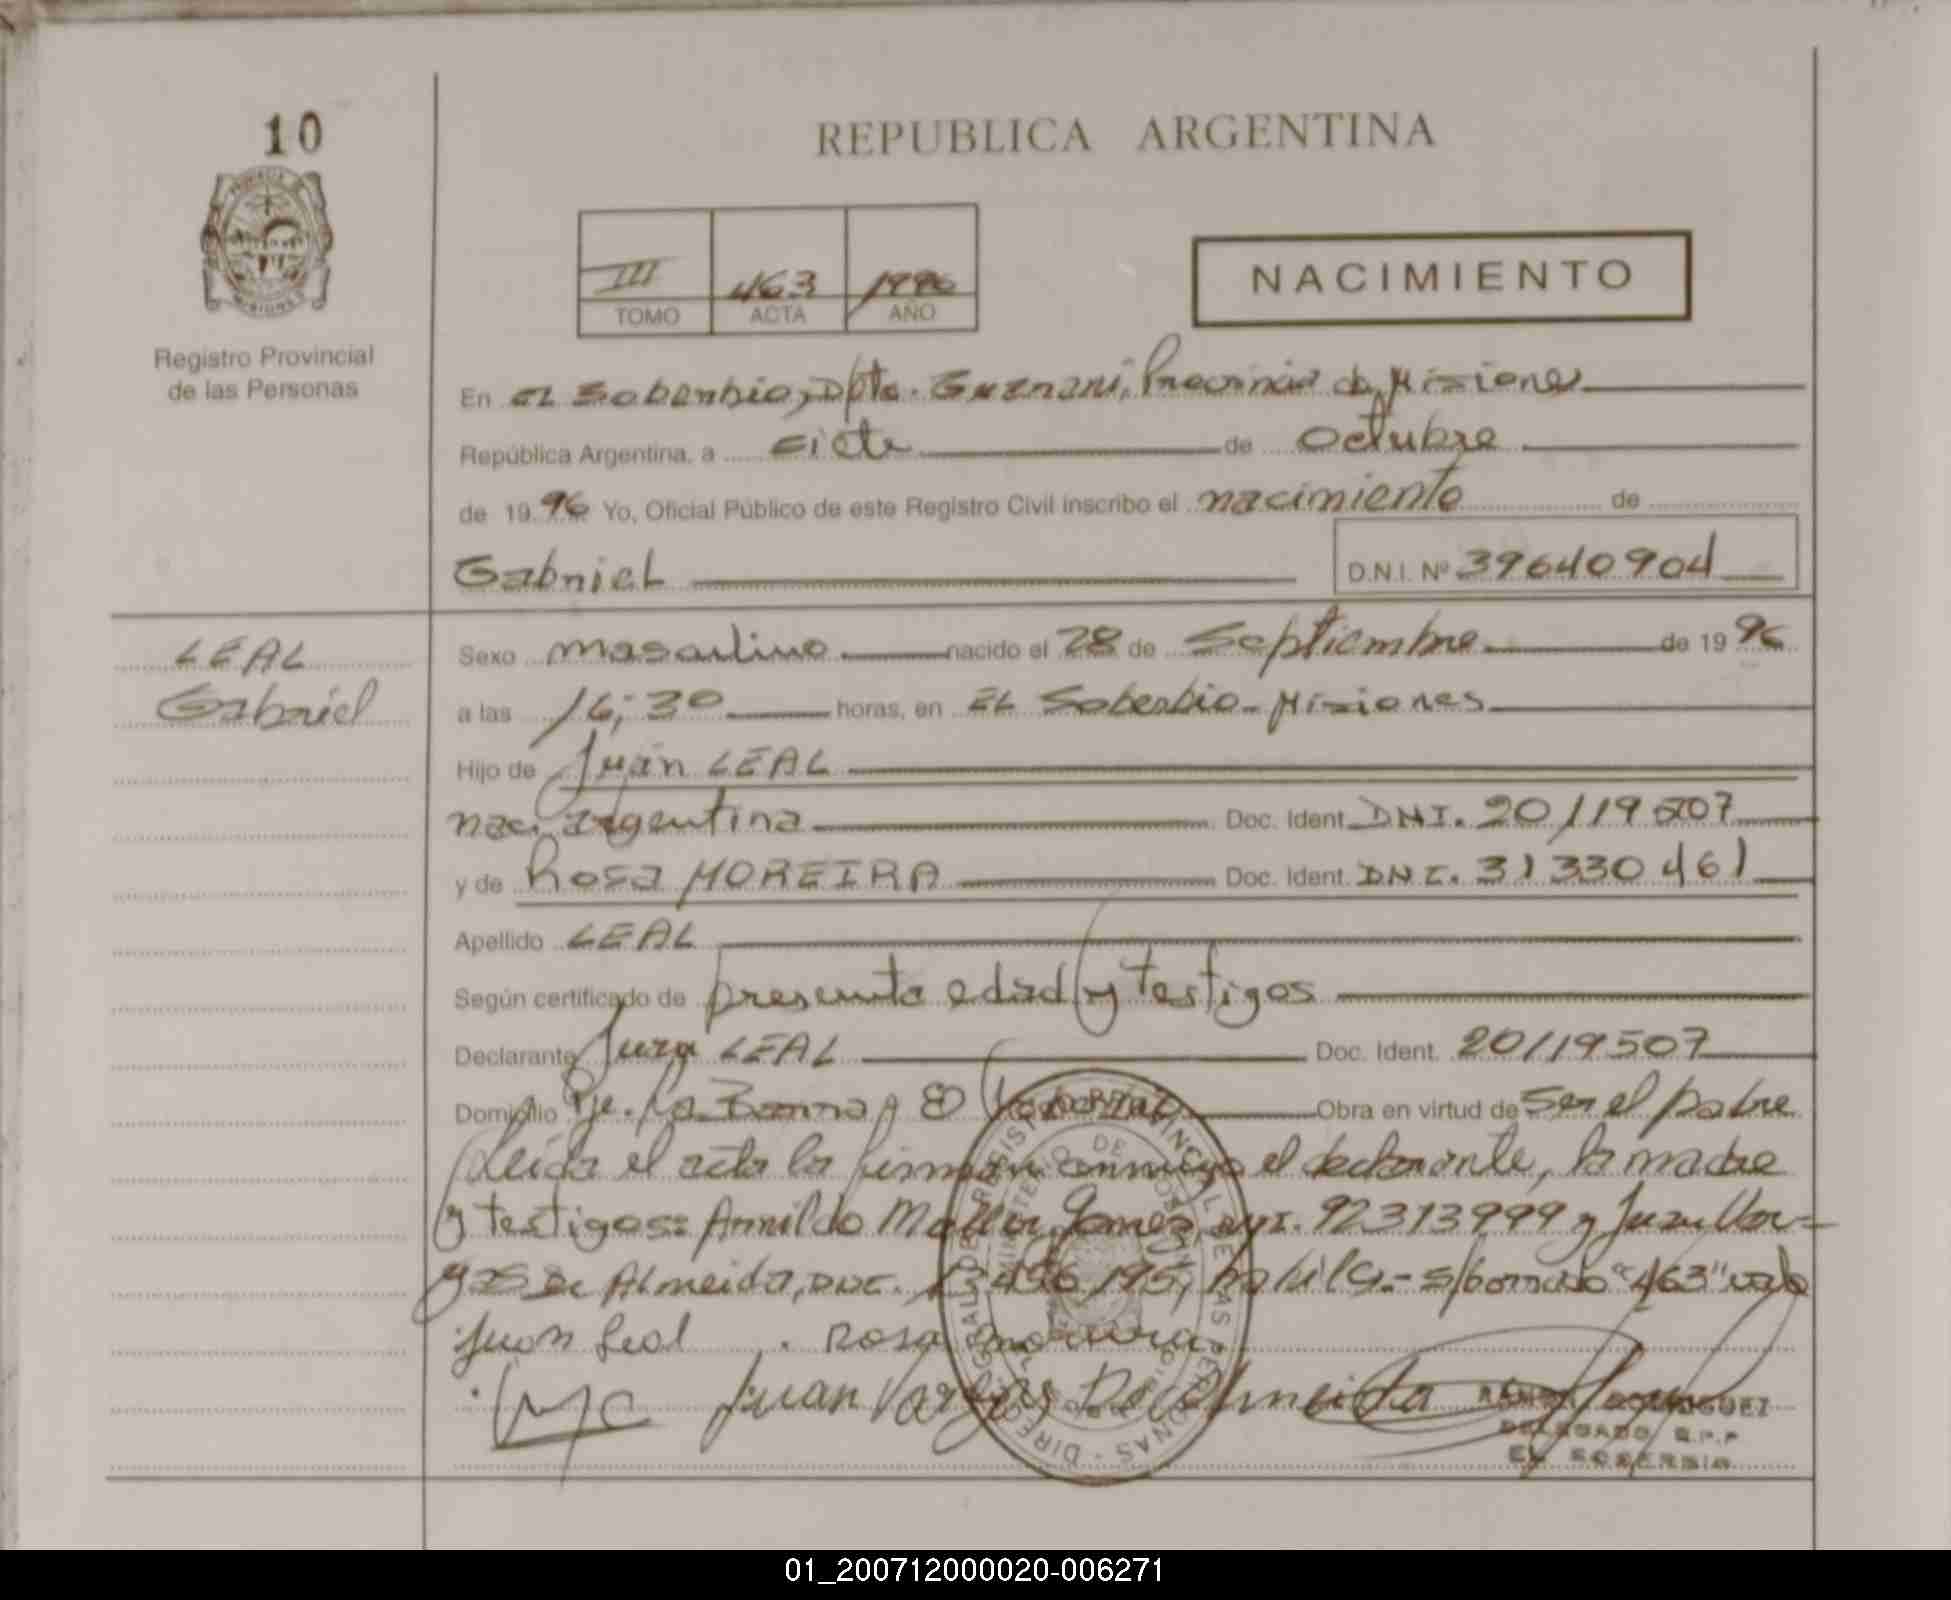 10
REPUBLICA ARGENTINA
III 463 1996
TOMO ACTA AÑO
NACIMIENTO
Registro Provincial
de las Personas
En EL Soberbio, Dpto. Guarani, Provincia de Misiones
República Argentina, a siete de octubre
de 1996 Yo, Oficial Público de este Registro Civil inscribo el nacimiento de
Gabriel D.N.I. Nº 39640904
LEAL
Gabriel
Sexo masculino nacido el 28 de Septiembre de 1996
a las 16;30 horas, en EL Soberbio - Misiones
Hijo de Juan LEAL
nac. argentina Doc. Ident. DNI. 20/19507
y de Rosa MOREIRA Doc. Ident. DNI. 31330461
Apellido LEAL
Según certificado de presunta edad y testigos
Declarante Juan LEAL Doc. Ident. 20/19507
Domicilio Pje. La Bonna, El Soberbio Obra en virtud de ser el padre
Leida el acta la firman conmigo el declarante, la madre
y testigos: Arnildo Gomez, DNI. 92313999 y Juan Var=
gas De Almeida, DNI. 13496195, s/borrado "463" vale
Juan Leal . Rosa moreira
Juan Vargas De Almeida
RAMON RODRIGUEZ
DELEGADO R.P.P
EL SOBERBIO
01_200712000020-006271